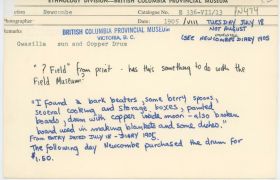 ETHNOLOGY DIVISION — BRITISH COLUMBIA PROVINCIAL MUSEUM
Newcombe
1905 /VIII
TUESDAY JULY 18
NOT AUGUST
(SEE NEWCOMBE DIARY 1905)
BRITISH COLUMBIA PROVINCIAL MUSEUM
VICTORIA, B. C.
sun and Copper Drum
"? Field" from print - has this something to do with the
Field Museum?
"I found a bark beaters, some berry spoons,
several cooking and storage boxes, painted
boards, drum with copper inside moon - also broken
board used in making blankets and some dishes."
FROM ENTRY DATED JULY 18 - DIARY 1905
The following day Newcombe purchased the drum for
$1.50.